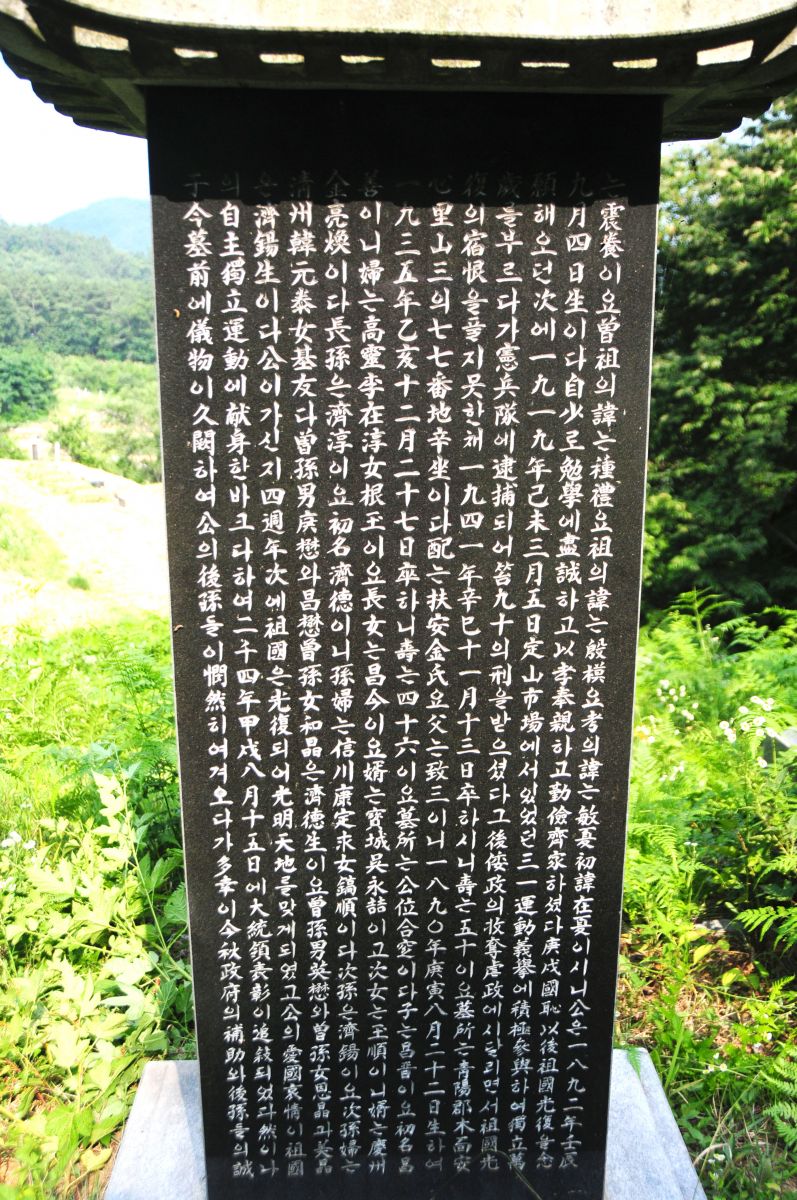 는震養이요曾祖의諱는種禮요祖의諱는殷模요考의諱는敏憂初諱在憂이시니公은一八九二年壬辰
九月四日生이다自少로勉學에盡誠하고以孝奉親하고勤儉齊家하셨다庚戌國恥以後祖國光復을念
願해오던次에一九一九年己未三月五日定山市場에서있었던三一運動義擧에積極參與하여獨立萬
歲를부르다가憲兵隊에逮捕되어笞九十의刑을받으셨다그後倭政의收奪虐政에시달리면서祖國光
復의宿恨을풀지못한채一九四一年辛巳十一月十三日卒하시니壽는五十이요墓所는靑陽郡木面安
心里山三의七七番地辛坐이다配는扶安金氏요父는致三이니一八九○年庚寅八月二十二日生하여
一九三五年乙亥十二月二十七日卒하니壽는四十六이요墓所는公位合窆이다子는昌晋이요初名昌
善이니婦는高靈李在淳女根玉이요長女는昌今이요婿는寶城吳永喆이고次女는玉順이니婿는慶州
金亮煥이다長孫은濟淳이요初名濟德이니孫婦는信川康定求女鎬順이다次孫은濟鍚이요次孫婦는
淸州韓元泰女基友다曾孫男庚懋와昌懋曾孫女和晶은濟德生이요曾孫男英懋와曾孫女恩晶과美晶
은濟鍚生이다公이가신지四週年次에祖國은光復되어光明天地를맞게되었고公의愛國衷情이祖國
의自主獨立運動에献身한바크다하여二千四年甲戌八月十五日에大統領表彰이追敍되었다然이나
于今墓前에儀物이久闕하여公의後孫들이憫然히여겨오다가多幸이今秋政府의補助와後孫들의誠